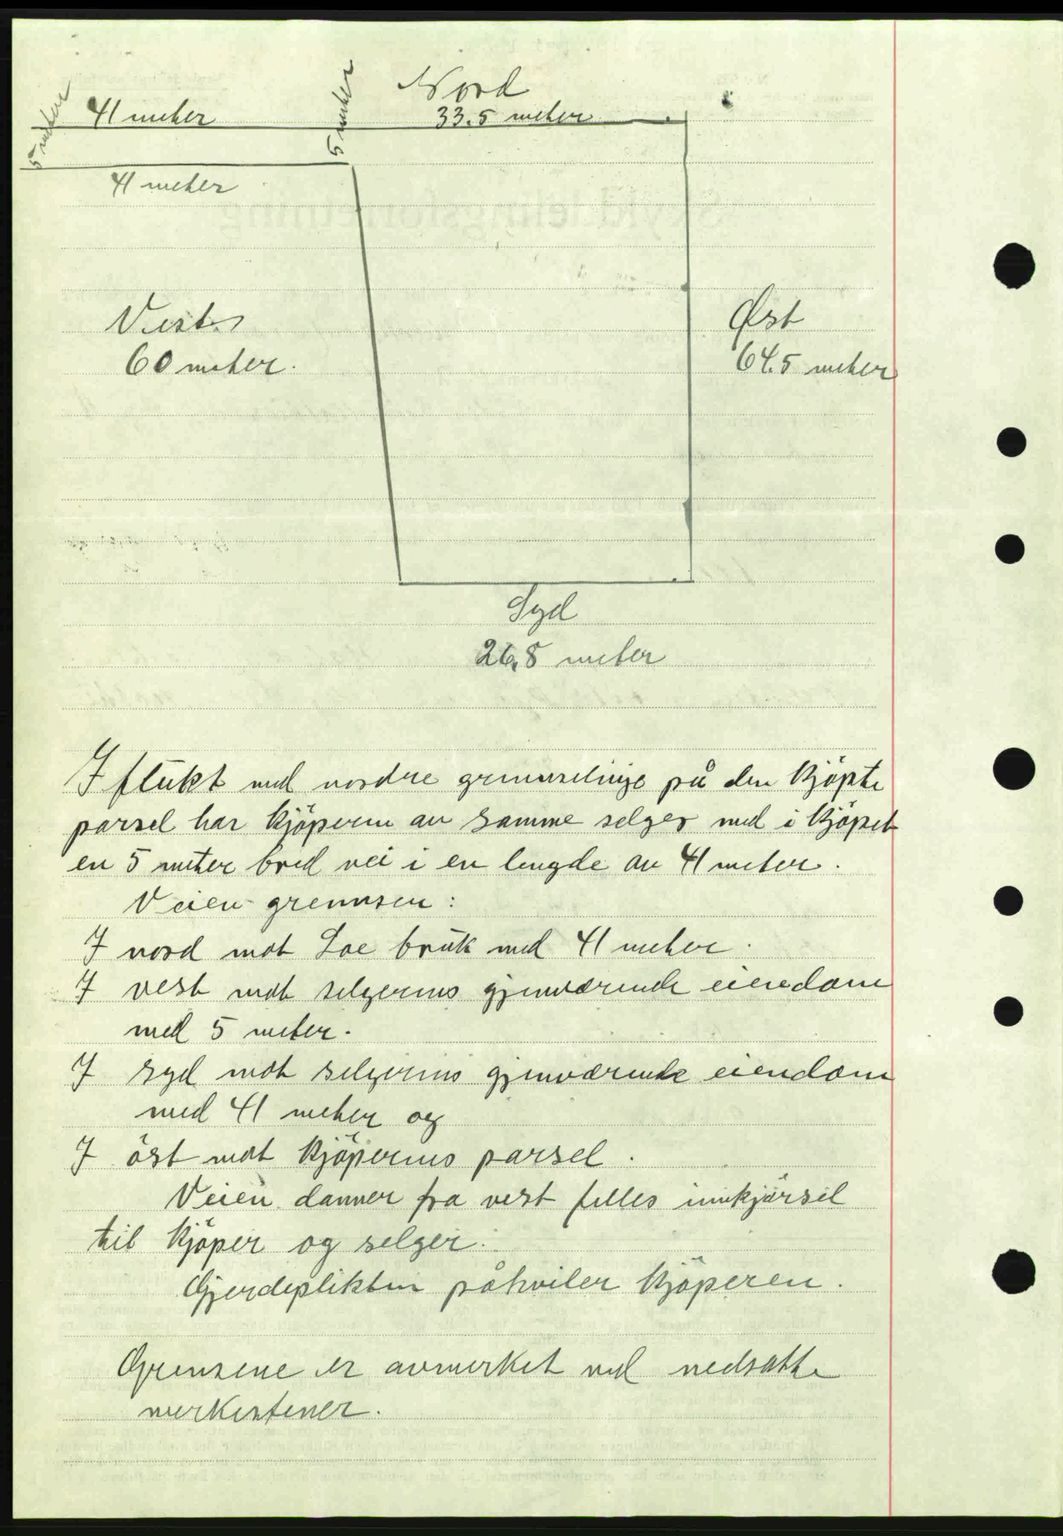 Nord
41 meter
5 meter
5 meter
33.5 meter
41 meter
Vest
60 meter.
Øst
64.5 meter
Syd
26,8 meter
I flukt med nordre grenselinje på den kjöpte
parsel har kjöperen av samme selger med i kjöpet
en 5 meter bred vei i en lengde av 41 meter.
Veien grennsen:
I nord mot Loe bruk med 41 meter.
I vest mot selgerens gjenværende eiendom
med 5 meter.
I syd mot selgerens gjenværende eiendom
med 41 meter og
I öst mot kjöperens parsel.
Veien danner fra vest felles innkjörsel
til kjöper og selger.
Gjerdeplikten påhviler kjöperen.
Grensene er avmerket ved nedsatte
merkestener.